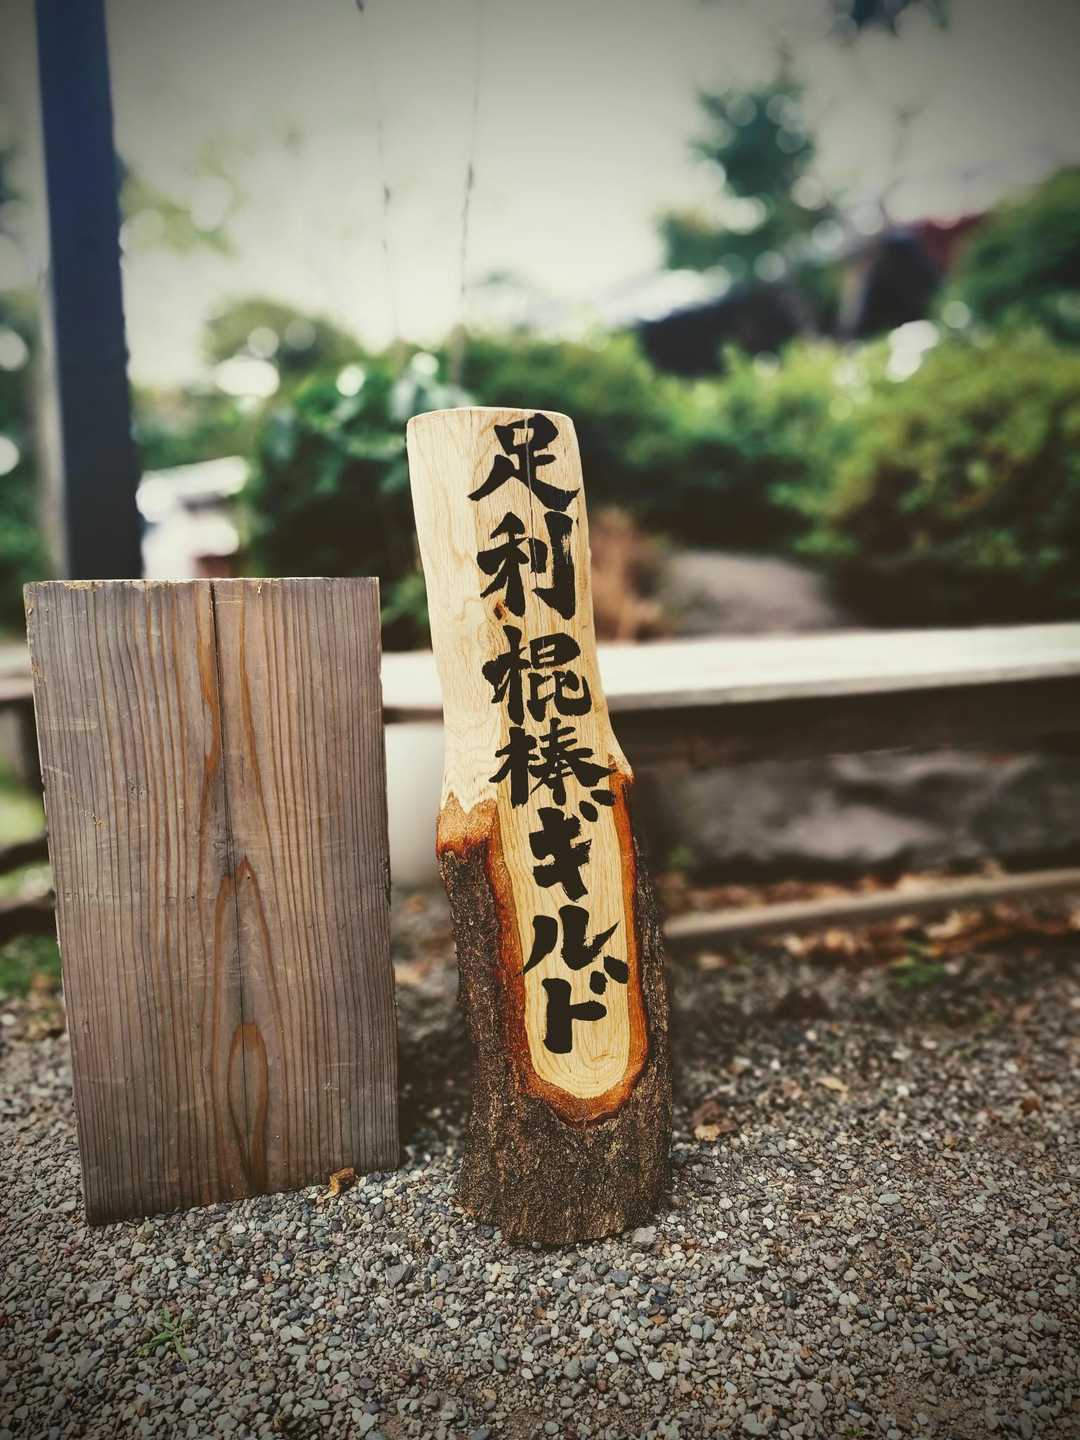 足利棍棒ギルド